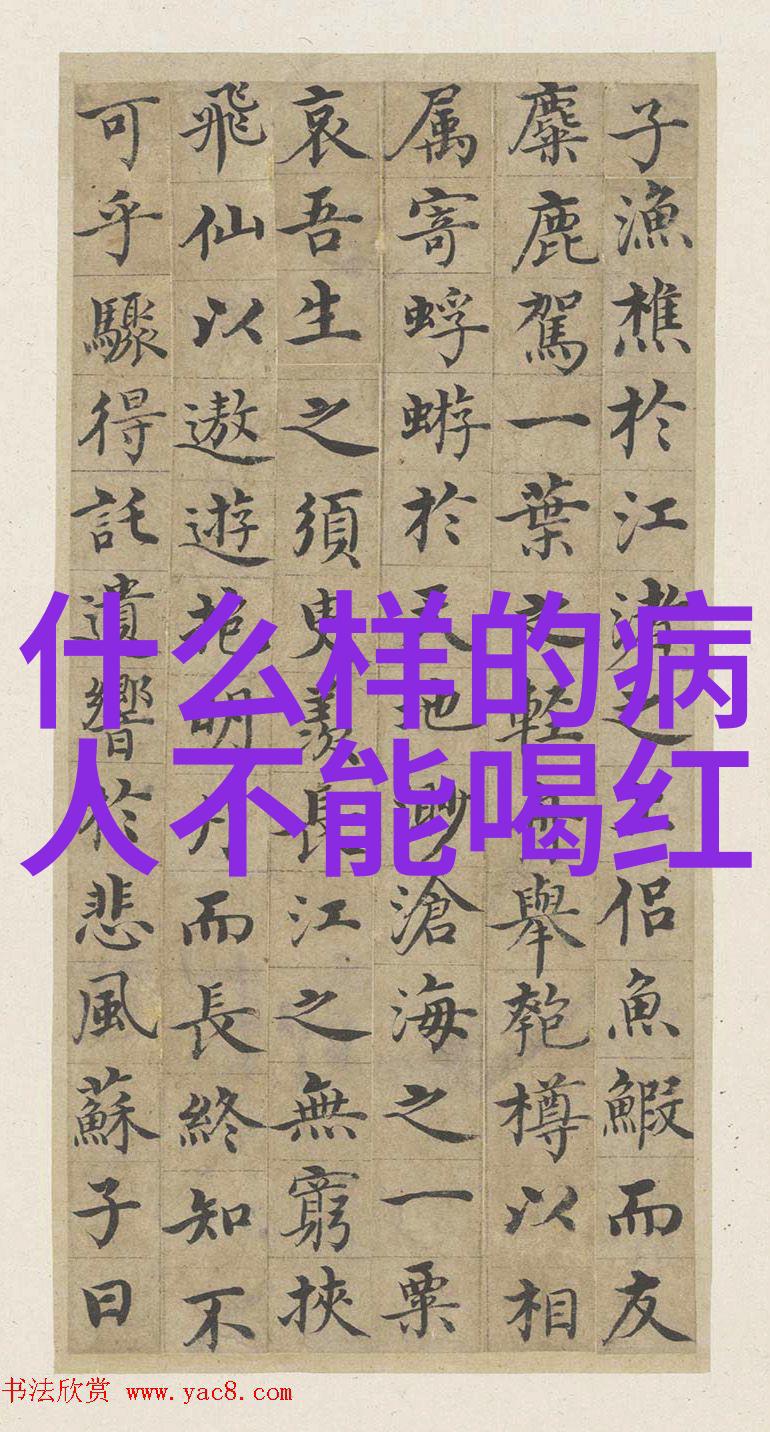 子漁樵於江渚之上侶魚鰕而友
麋鹿駕一葉之輕舟舉匏樽以相
属寄蜉蝣於天地渺滄海之一粟
哀吾生之須臾羨長江之無窮挾
飛仙以遨遊抱明月而長終知不
可乎驟得託遺響於悲風蘇子曰
什么样的病
人不能喝红
书法欣赏 www.yac8.com